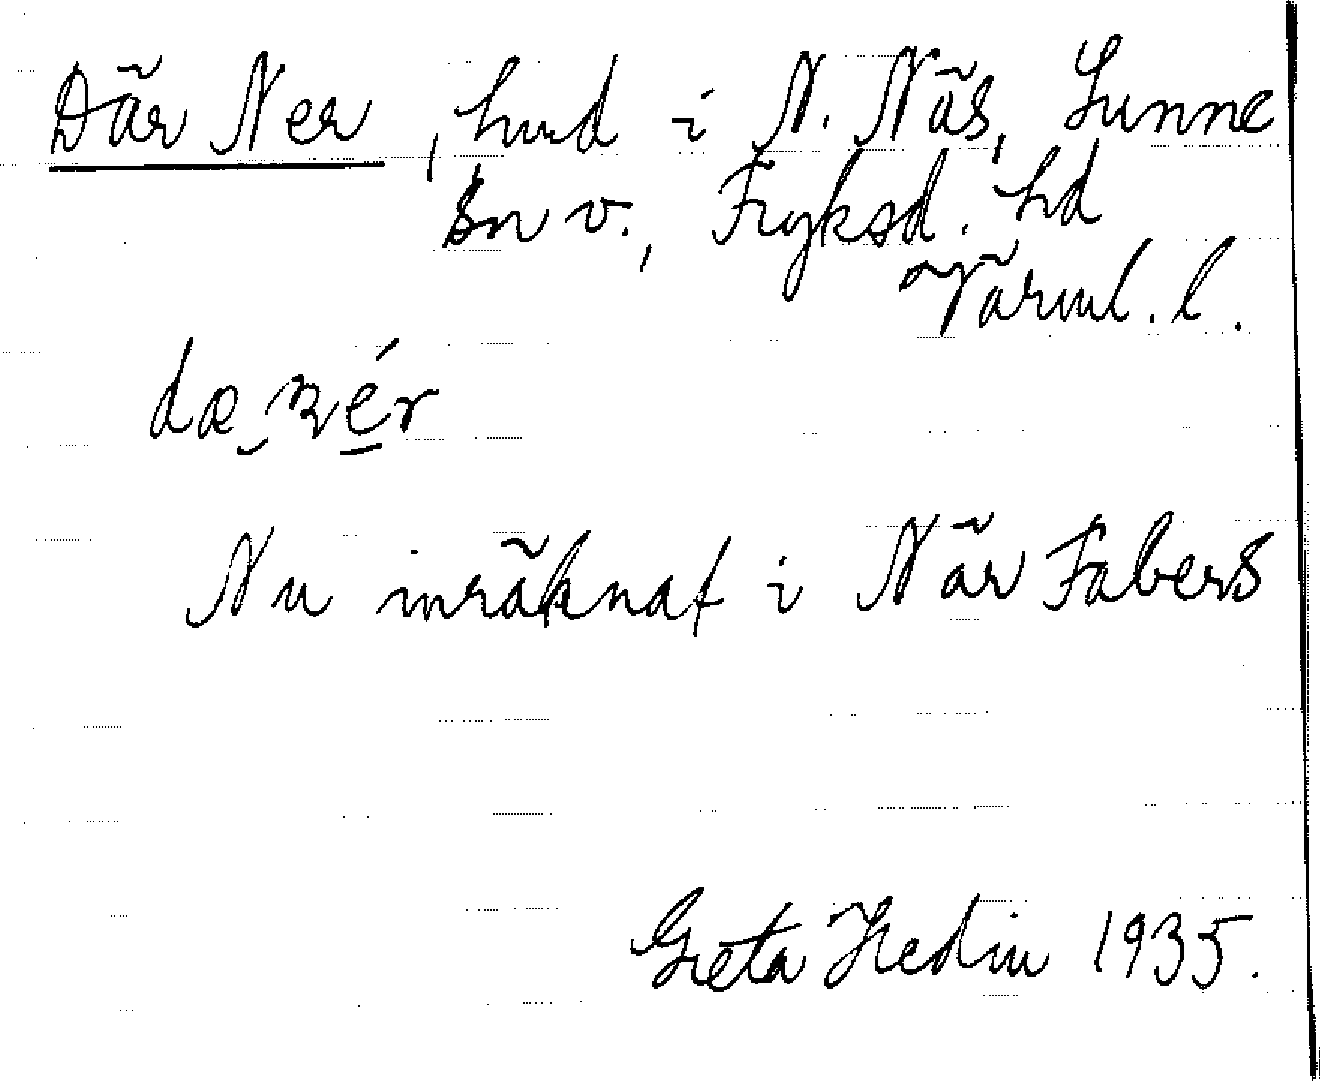 Där Ner, hmd i N. Näs, Sunne
sn v., Fryksd. hd
Värml. l.
Nu inräknat i När Fabers
Greta Hedin 1935.